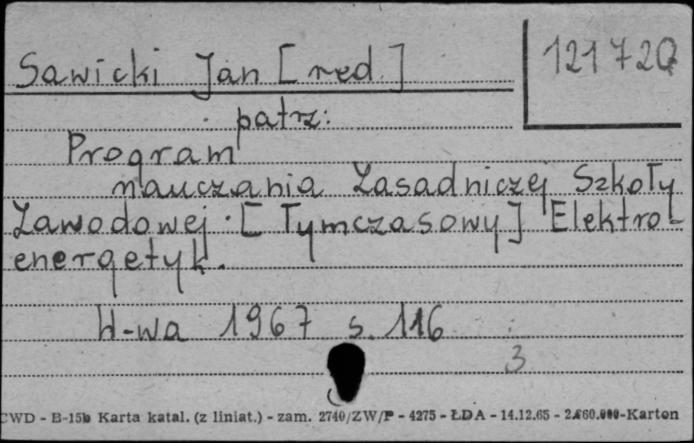 Sawicki Jan [red.]
121720
patrz:
Program
nauczania Zasadniczej Szkoły
Zawodowej. [Tymczasowy] Elektro-
energetyk.
W-wa 1967 s. 116
3
CWD - B-15b Karta katal. (z liniat.) - zam. 2740/ZW/P - 4275 - ŁDA - 14.12.65 - -Karton